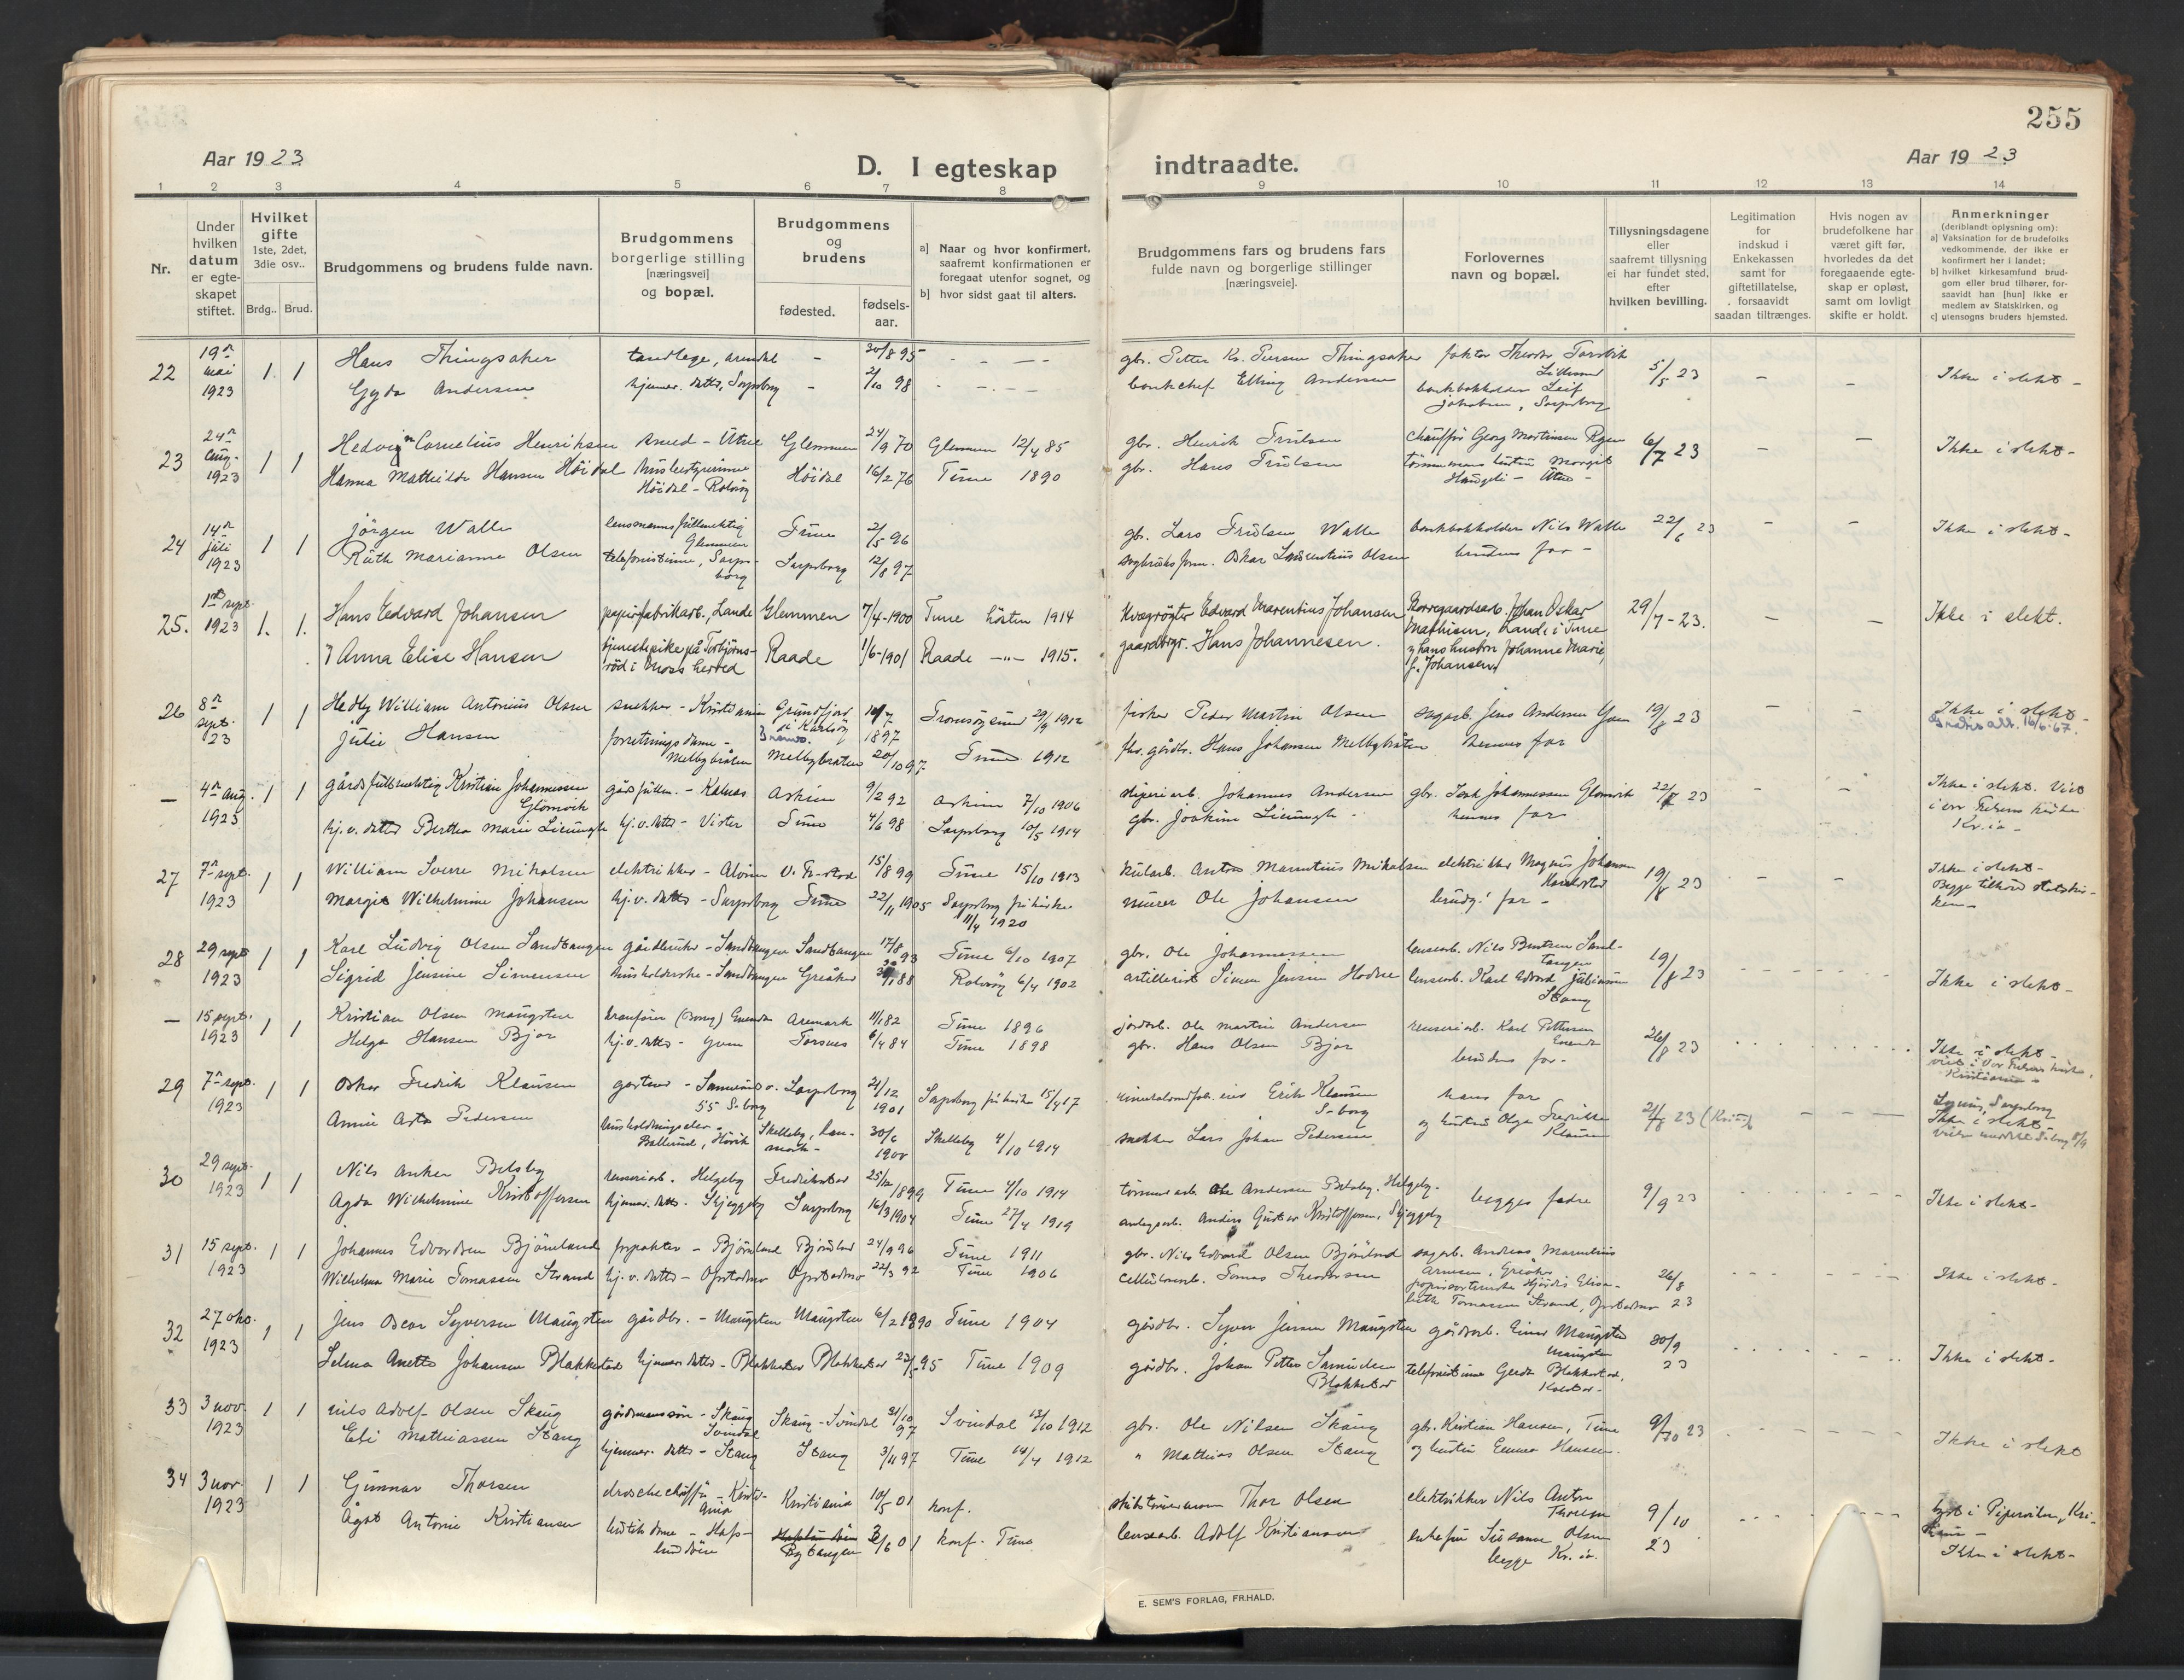 255
Aar 1923
D. I egteskap indtraadte.
Aar 1923
1 2 3 4 5 6 7 8 9 10 11 12 13 14
Nr.
Under hvilken datum er egteskapet stiftet.
Hvilket gifte 1ste, 2det, 3die osv..
Brdg.. Brud.
Brudgommens og brudens fulde navn.
Brudgommens borgerlige stilling [næringsvei] og bopæl.
Brudgommens og brudens
fødested.
fødsels-aar.
a] Naar og hvor konfirmert, saafremt konfirmationen er foregaat utenfor sognet, og
b] hvor sidst gaat til alters.
Brudgommens fars og brudens fars fulde navn og borgerlige stillinger [næringsveie].
Forlovernes navn og bopæl.
Tillysningsdagene eller saafremt tillysning ei har fundet sted, efter hvilken bevilling.
Legitimation for indskud i Enkekassen samt for giftetillatelse, forsaavidt saadan tiltrænges.
Hvis nogen av brudefolkene har været gift før, hvorledes da det foregaaende egteskap er opløst, samt om lovligt skifte er holdt.
Anmerkninger (deriblandt oplysning om):
a] Vaksination for de brudefolks vedkommende, der ikke er konfirmert her i landet;
b] hvilket kirkesamfund brudgom eller brud tilhører, forsaavidt han [hun] ikke er medlem av Statskirken, og
c] utensogns bruders hjemsted.
22 19n mai 1923 1. 1 Hans Thingsaker tandlæge, Arendal - 30/8 95 gbr. Petter Kr. Thingsaker faktor Theodor 5/5 23 - - Ikke i slekt -
Gyda Andersen hjemmev. datter, Sarpsborg - 2/10 98 bankchef Elling Andersen bankbokholder Leif Jakobsen, Sarpsborg
23 24n aug. 1923 1 1 Hedvin Cornelius Henriksen smed - Utne Glemmen 24/9 70 Glemmen 12/4 85 gbr. Henrik Trulsen chauffør Georg Martinsen 6/7 23 - - Ikke i slekt -
Hanna Mathilde Hansen Höidal husbestyrerinne Höidal - Rolvsøy Höidal 16/2 76 Tune 1890 gbr. Hans Trulsen tömmermans hustru Margit Haugeli - Utne -
24 14n juli 1923 1 1 Jörgen Walle lensmannsfullmektig Glemmen Tune 2/5 96 gbr. Lars Trulsen Walle bankbokholder Nils Walle 22/6 23 - - Ikke i slekt -
Ruth Marianne Olsen telefonistinne, Sarpsborg Sarpsborg 12/8 97 sagbruksform. Oskar Laurentius Olsen brudens far -
25. 1st sept. 1923 1. 1. Hans Edvard Johansen papirfabrikarb., Lande Glemmen 7/4-1900 Tune hösten 1914 Kvægrögter Edvard Marentius Johansen Borregaardsarb. Johan Oskar Mathisen, Lande i Tune 29/7-23. - - Ikke i slekt.
Anna Elise Hansen tjenestepike på Torbjørnsrød i Moss herred Raade 1/6-1901 Raade -"- 1915. gaardbrgr. Hans Johannesen. og hans hustru Johanne Marie, f. Johansen
26 8n sept. 23 1 1 Hedly William Antonius Olsen snekker - Kristiania Grundfjord i Karlsöy 1897 Tromsöysund 29/9 1912 fisker Peder Martin Olsen sagarb. Jens Andersen 19/8 23 - - Ikke i slekt - Gratis att. 16/6-67.
Julie Hansen forretningsdame - Melbybråten Melbybråten 20/10 97 Tune 1912 fhv. gårdbr. Hans Johansen Melbybråten hennes far
- 4n aug. 1923 1 1 gårdsfullmektig Kristian Johannessen Glomvik gårdsfullm. - Kalnes Askim 9/2 92 Askim 7/10 1906 sliperiarb. Johannes Andersen gbr. Johannessen Glomvik 22/7 23 - - Ikke i slekt. Viet i vor Frelsers kirke Kr.ia -
hj.v. datter Berthe Marie hj.v. datter - Vister Tune 4/6 98 Sarpsborg 10/5 1914 gbr. Joakim hennes far
27 7n sept. 1923 1 1 William Sverre Mikalsen elektriker - Alvim 15/8 99 Tune 15/10 1913 kularb. Anton Marentius Mikalsen elektriker Magnus Johansen 19/8 23 - - Ikke i slekt - Begge tilhører statskirken -
Margit Wilhelmine Johansen hj.v. datter - Sarpsborg Tune 22/11 1905 Sarpsborg frikirke 11/4 1920 murer Ole Johansen brudg. far -
28 29 sept 1923 1 1 Karl Ludvig Olsen Sandtangen gårdbruker - Sandtangen Sandtangen 17/8 93 Tune 6/10 1907 gbr. Ole Johannessen lensearb. Nils Berntsen Sandtangen 19/8 23 Ikke i slekt -
Sigrid Jensine Simensen husholderske - Sandtangen Greåker 88 Rolvsöy 6/4 1902 artillerist Simen Jensen lensearb. Karl Edvard Juliussen Stang
- 15 sept. 1923 1 1 Kristian Olsen Maugsten (Borreg) Aremark 11/1 82 Tune 1896 jordarb. Ole Martin Andersen renseriarb. Karl Pettersen 26/8 23 Ikke i slekt - viet i Vor Frelsers kirke, Kristiania -
Helga Hansen Bjor hj.v. datter - Torsnes 6/4 84 Tune 1898 gbr. Hans Olsen Bjor brudens far -
29 7n sept. 1923 1 1 Oskar Fredrik Klausen gartner - 55 S-borg Sarpsborg 21/12 1901 Sarpsborg frikirke 15/4 17 Erik Klausen S-borg hans far 21/8 23 - - Ikke i slekt -
Annie Asta Pedersen husholdningselev - Skelleby, Danmark - 30/6 1900 Skelleby 4/10 1914 snekker Lars Johan Pedersen og hustru Olga Fredrikke Klausen
30 29 sept. 1923 1 1 Nils Anker Bilsby renseriarb. Helgeby Fredrikstad 25/12 1899 Tune 4/10 1914 tömmerarb. Ole Andersen Bilsby. Helgeby - begges fedre 9/9 23 Ikke i slekt -
Agda Wilhelmine Kristoffersen hjemmev. datter. Skjeggeby Sarpsborg 16/3 1904 Tune 27/4 1919 anlegsarb. Anders Gustav Kristoffersen, Skjeggeby
31 15 sept. 1923 1 1 Johannes Edvardsen Björnland forpakter - Björnland Björnland 24/9 96 Tune 1911 gbr. Nils Edvard Olsen Björnland sagarb. Andreas Marselius Arnesen, Greåker 26/8 23 Ikke i slekt -
Wilhelma Marie Tomassen Strand hj.v. datter - Opstadmo Opstadmo 22/3 92 Tune 1906 cellulosearb. Tomas Theodorsen papirsorterske Hjördis Elisabeth Tomassen Strand, Opstadmo
32 27 okt. 1923 1 1 Jens Oscar Syversen Maugsten gårdbr. - Maugsten Maugsten 6/2 1890 Tune 1904 gårdbr. Syver Jensen Maugsten gårdarb. Einar Maugsten Maugsten 30/9 23 Ikke i slekt -
Selma Anette Johansen Blakkestad hjemmev. datter - Blakkestad Blakkestad 23/5 95 Tune 1909 gårdbr. Johan Petter Samuelsen Blakkestad telefonistinne Gerda Blakkestad,
33 3 nov 1923 1 1 Nils Adolf Olsen Skaug gårdmannssön - Skaug Svindal Skaug - Svindal 31/10 97 Svindal 13/10 1912 gbr. Ole Nilsen Skaug gbr. Kristian Hansen, Tune 9/10 23 Ikke i slekt
Eli Mathiassen Stang hjemmev. datter - Stang Stang 3/11 97 Tune 14/4 1912 " Mathias Olsen Stang og hustru Emma Hansen -
34 3 nov. 1923 1 1 Gunnar Thorsen droschechaffør - Kristiania Kristiania 10/5 01 konf. skibstömmermann Thor Olsen elektriker Nils Anton Thorsen 9/10 23 lyst i Pipervikens, Kristiania -
Ågot Antonie Kristiansen butikdame - Hafslundsöen Bytangen 3/6 01 konf. Tune lensearb. Adolf Kristiansen enkefru Susanne Olsen begge Kr.ia. Ikke i slekt -
E. SEM'S FORLAG, FR.HALD.